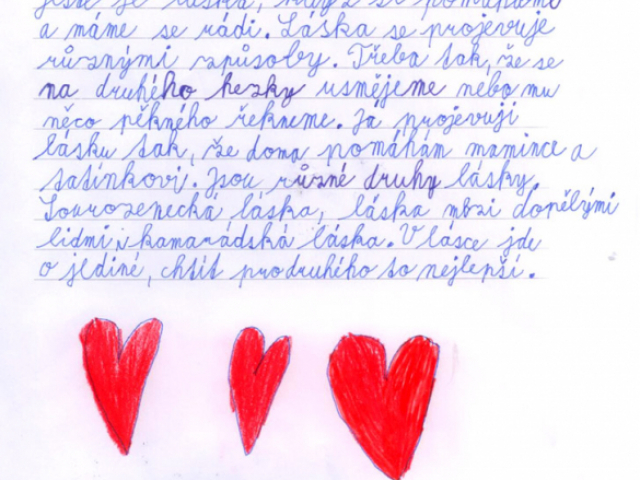 a máme se rádi. Láska se projevuje
různými způsoby. Třeba tak, že se
na druhého hezky usmějeme nebo mu
něco pěkného řekneme. Já projevuji
lásku tak, že doma pomáhám mamince a
tatínkovi. Jsou různé druhy lásky.
Sourozenecká láska, láska mezi dospělými
lidmi i kamarádská láska. V lásce jde
o jediné, chtít pro druhého to nejlepší.